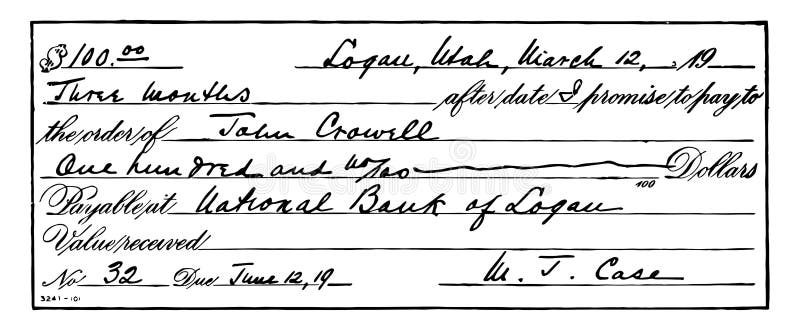 $100.00 Logan, Utah, March 12, 19
Three months after date I promise to pay to
the order of John Crowell
One hundred and no/100 Dollars
100
Payable at National Bank of Logan
Value received
No 32 Due June 12, 19 M. J. Case
3241-101
dreamstime